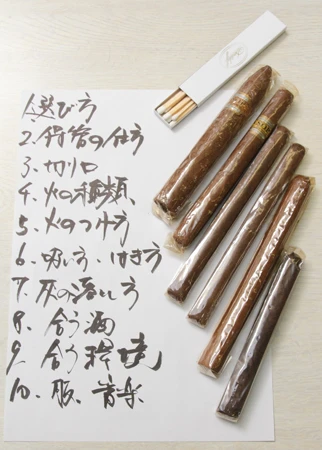 1.選び方
2.保管の仕方
3.切り口
4.火の種類
5.火のつけ方
6.吸い方、はき方
7.灰の落とし方
8.合う酒
9.合う環境
10.服、音楽